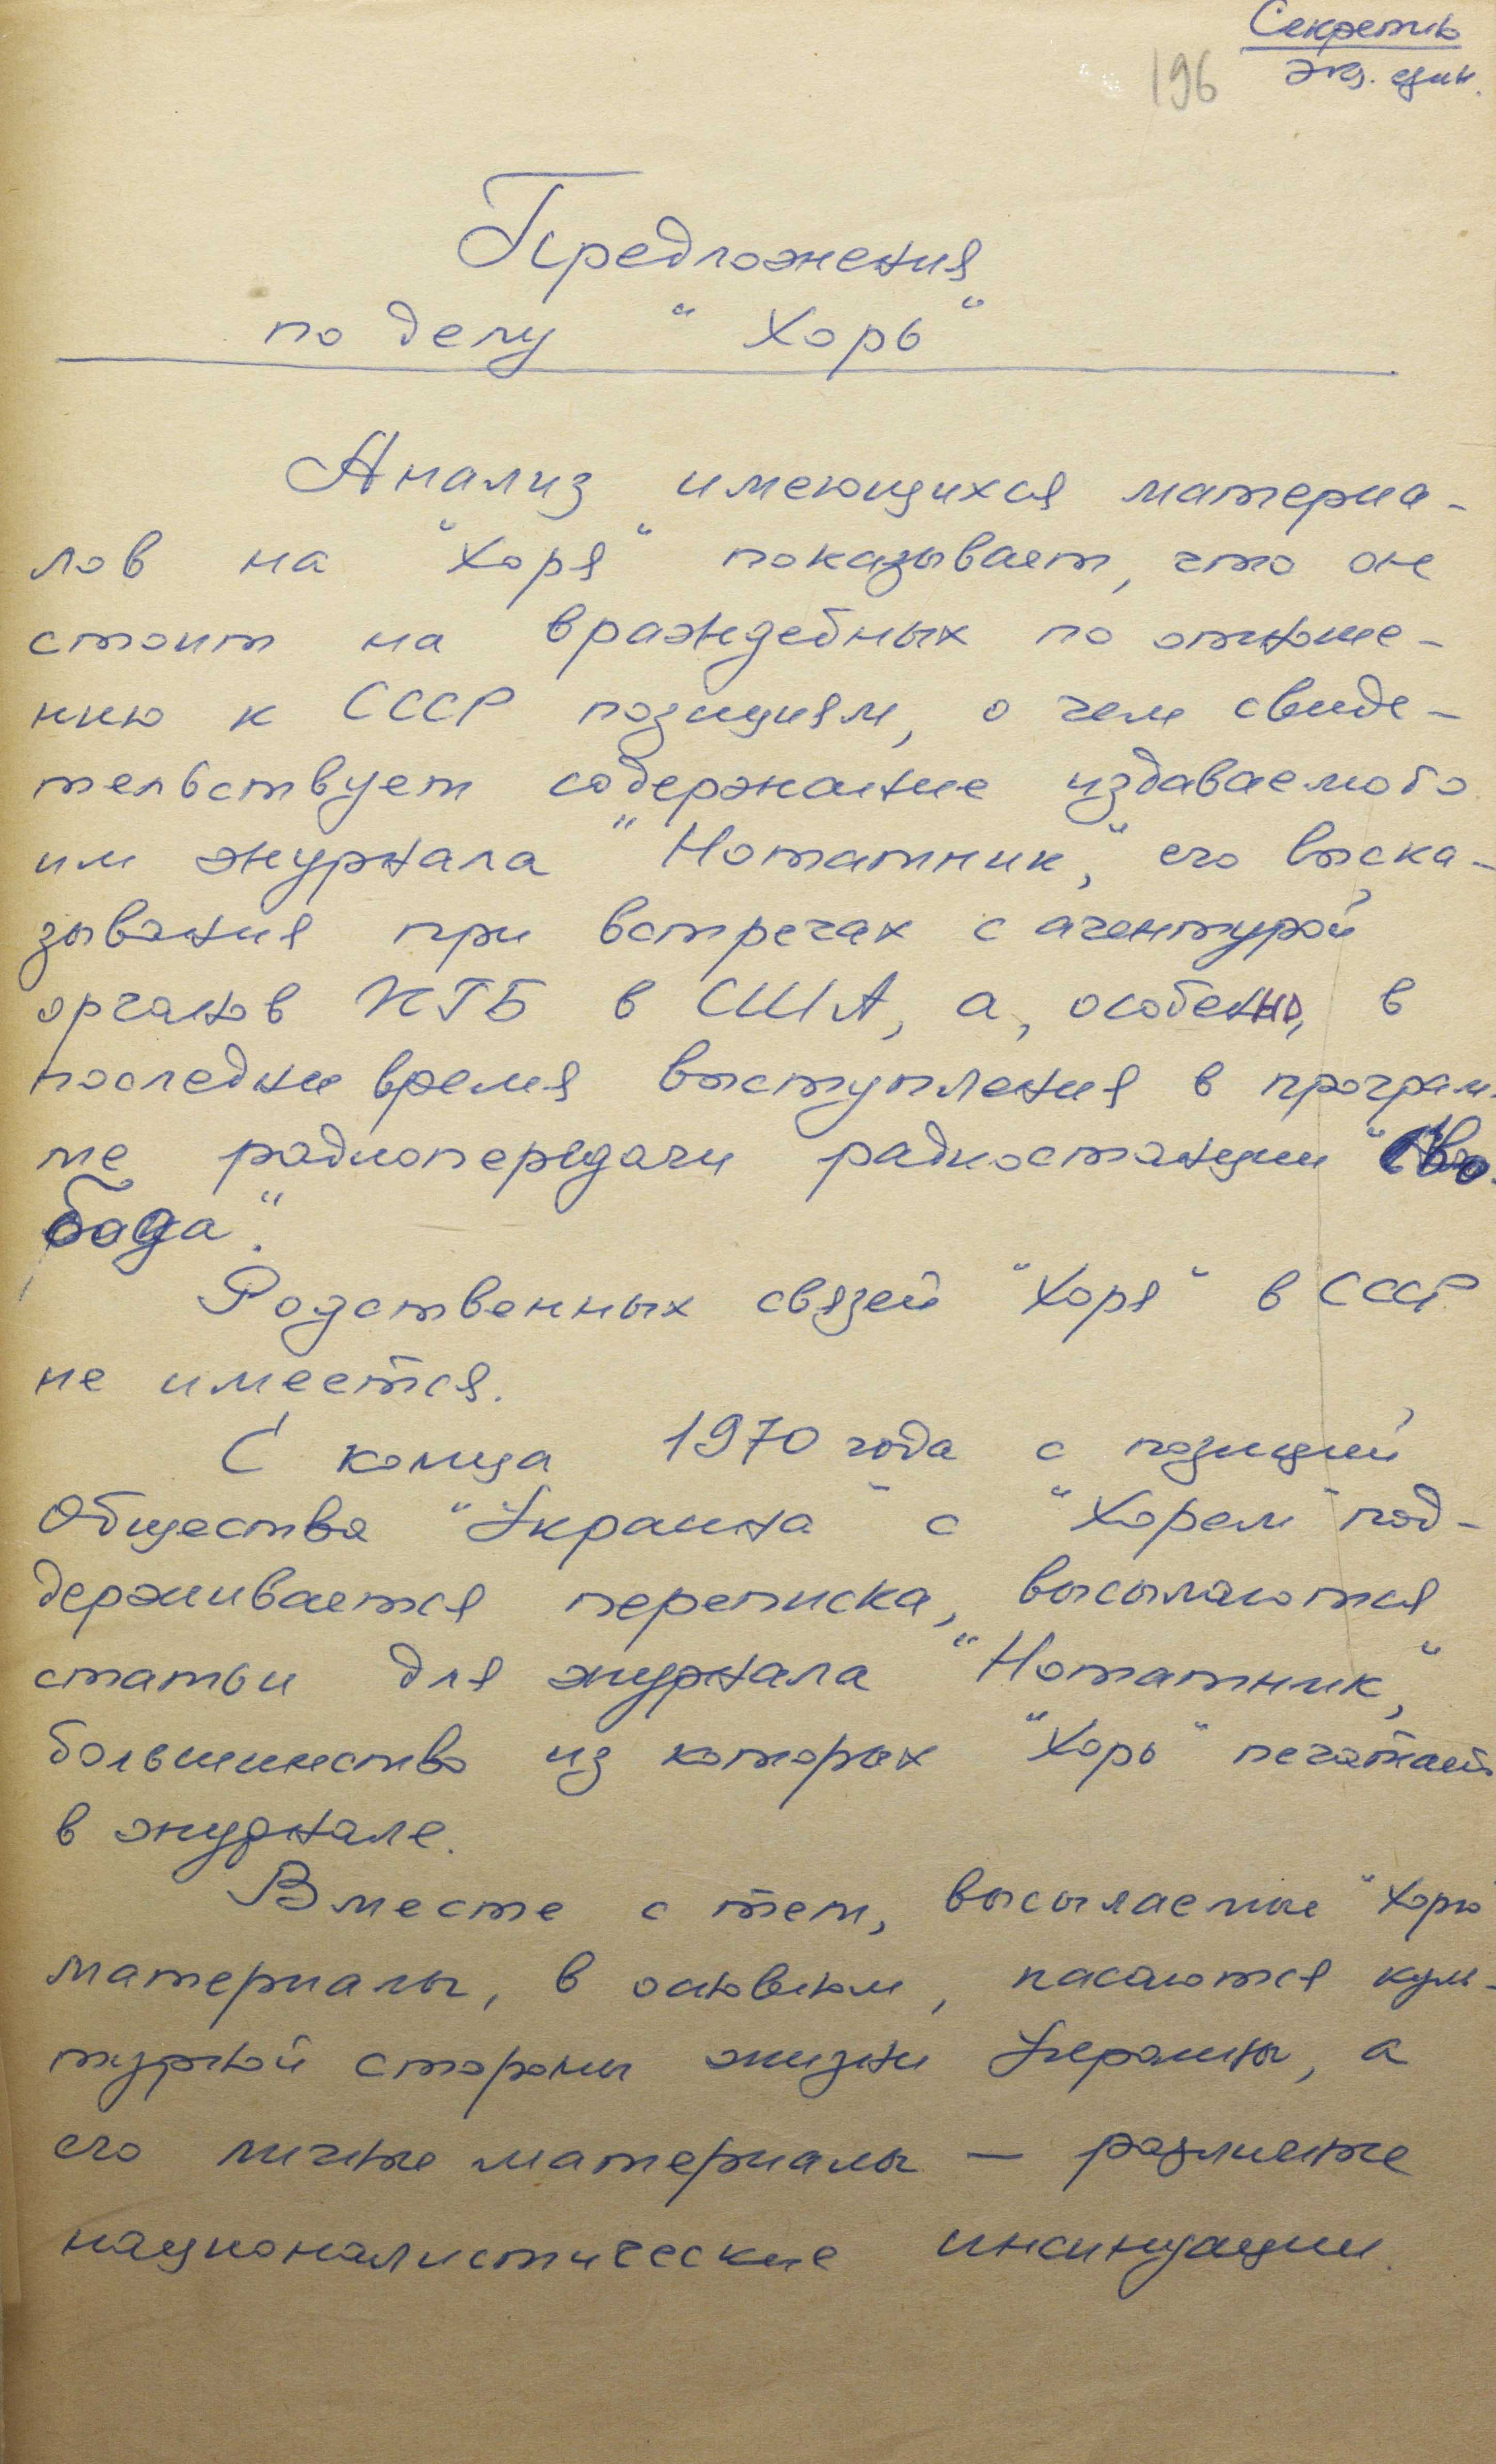 Секретно
196
Экз. един.
Предложения
по делу "Хорь"
Анализ имеющихся материа-
лов на "Хоря" показывает, что он
стоит на враждебных по отноше-
нию к СССР позициям, о чем свиде-
тельствует содержание издаваемого
им журнала "Нотатник", его выска-
зывания при встречах с агентурой
органов КГБ в США, а, особенно, в
последнии время выступления в програм-
ме радиопередачи радиостанции "Сво-
бода".
Родственных связей "Хоря" в СССР
не имеется.
С конца 1970 года с позиций
Общества "Украина" с "Хорем" под-
держивается переписка, высылаются
статьи для журнала "Нотатник",
большинство из которых "Хорь" печатает
в журнале.
Вместе с тем, высылаемые "Хорю"
материалы, в основном, касаются куль-
турной стороны жизни Украины, а
его личные материалы — различные
националистические инсинуации.